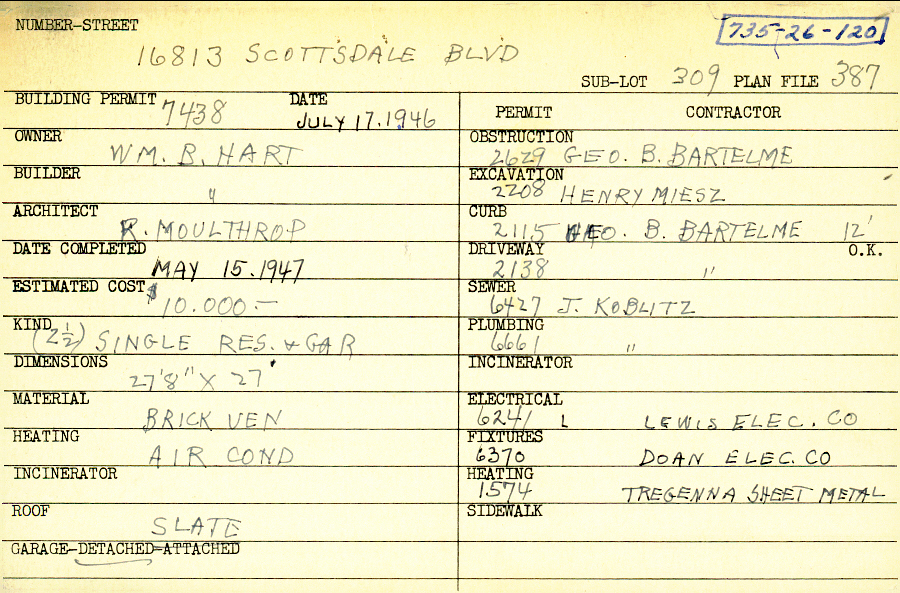 NUMBER-STREET
735-26-120
16813 SCOTTSDALE BLVD
SUB-LOT 309 PLAN FILE 387
BUILDING PERMIT 7438 DATE JULY 17.1946
OWNER WM. B. HART
BUILDER "
ARCHITECT R. MOULTHROP
DATE COMPLETED MAY 15.1947
ESTIMATED COST $10.000.-
KIND (2½) SINGLE RES. & GAR
DIMENSIONS 27'8" X 27'
MATERIAL BRICK VEN
HEATING AIR COND
INCINERATOR
ROOF SLATE
GARAGE-DETACHED-ATTACHED
PERMIT CONTRACTOR
OBSTRUCTION 2629 GEO. B. BARTELME
EXCAVATION 2208 HENRY MIESZ
CURB 2115 GEO. B. BARTELME 12'
DRIVEWAY 2138 " O.K.
SEWER 6427 J. KOBLITZ
PLUMBING 6661 "
INCINERATOR
ELECTRICAL 6241 L LEWIS ELEC. CO
FIXTURES 6370 DOAN ELEC. CO
HEATING 1574 TREGENNA SHEET METAL
SIDEWALK